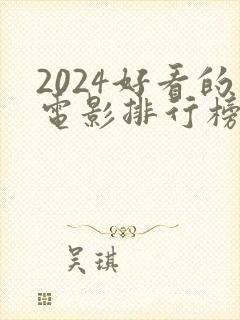 2024好看的
电影排行榜
吴琪